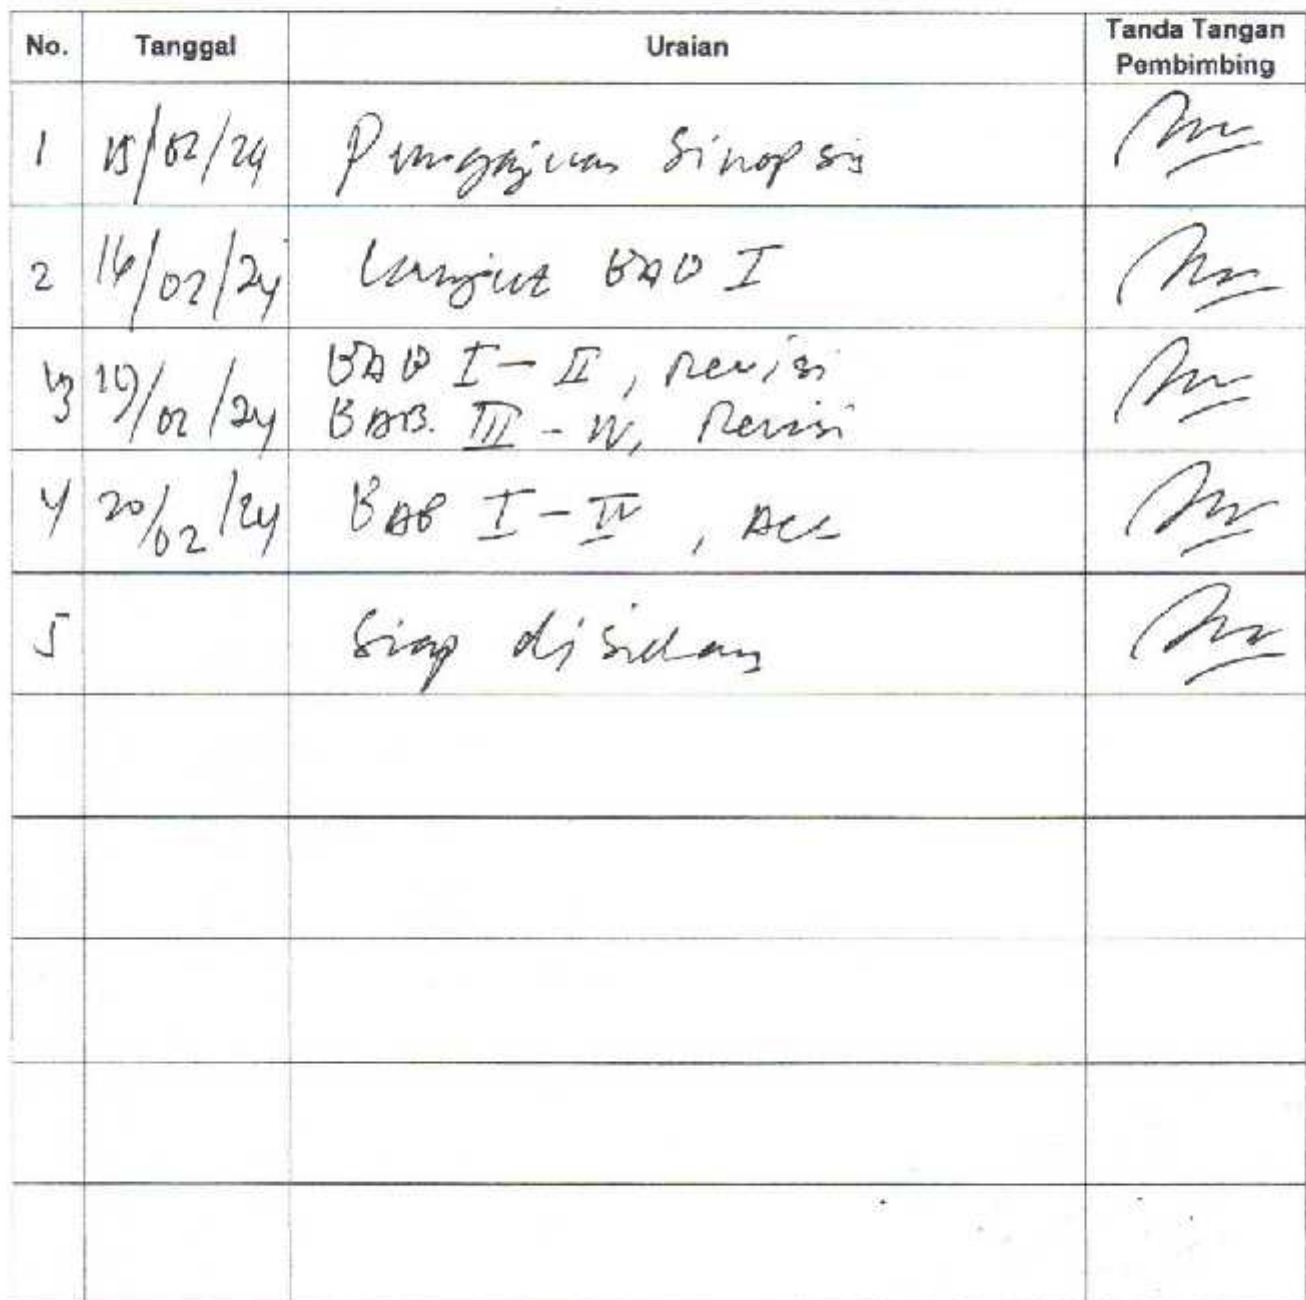 No. Tanggal Uraian Tanda Tangan Pembimbing
1 15/02/24 Pengajuan Sinopsis
2 16/02/24 Lanjut BAB I
3 19/02/24 BAB I - II, Revisi
BAB. III - IV, Revisi
4 20/02/24 BAB I - IV, ACC
5 Siap disidang